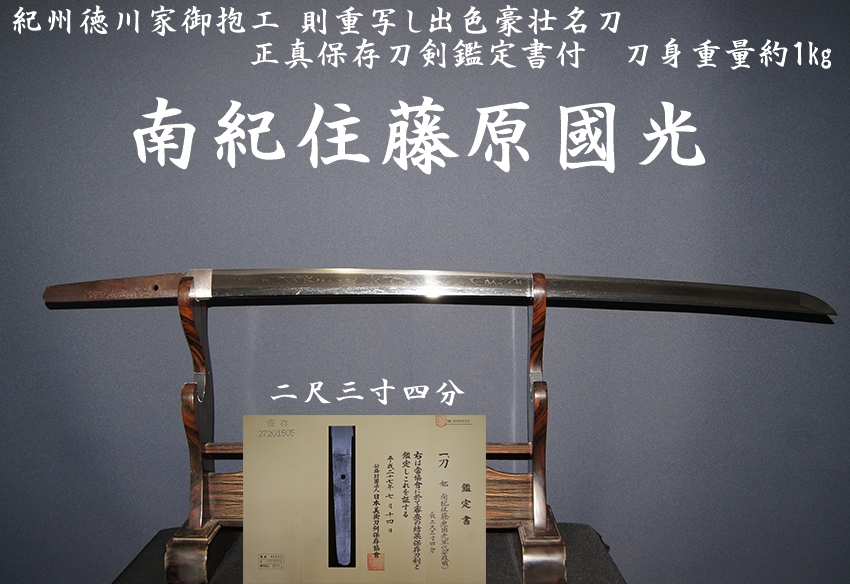 紀州徳川家御抱工 則重写し出色豪壮名刀
正真保存刀剣鑑定書付 刀身重量約1㎏
南紀住藤原國光
二尺三寸四分
保存
27201505
鑑定書
一刀 銘 南紀住藤原國光
長二尺三寸四分
右は當協會に於て審査の結果保存刀剣と
鑑定しこれを証する
平成二十七年七月十四日
公益財団法人日本美術刀剣保存協會